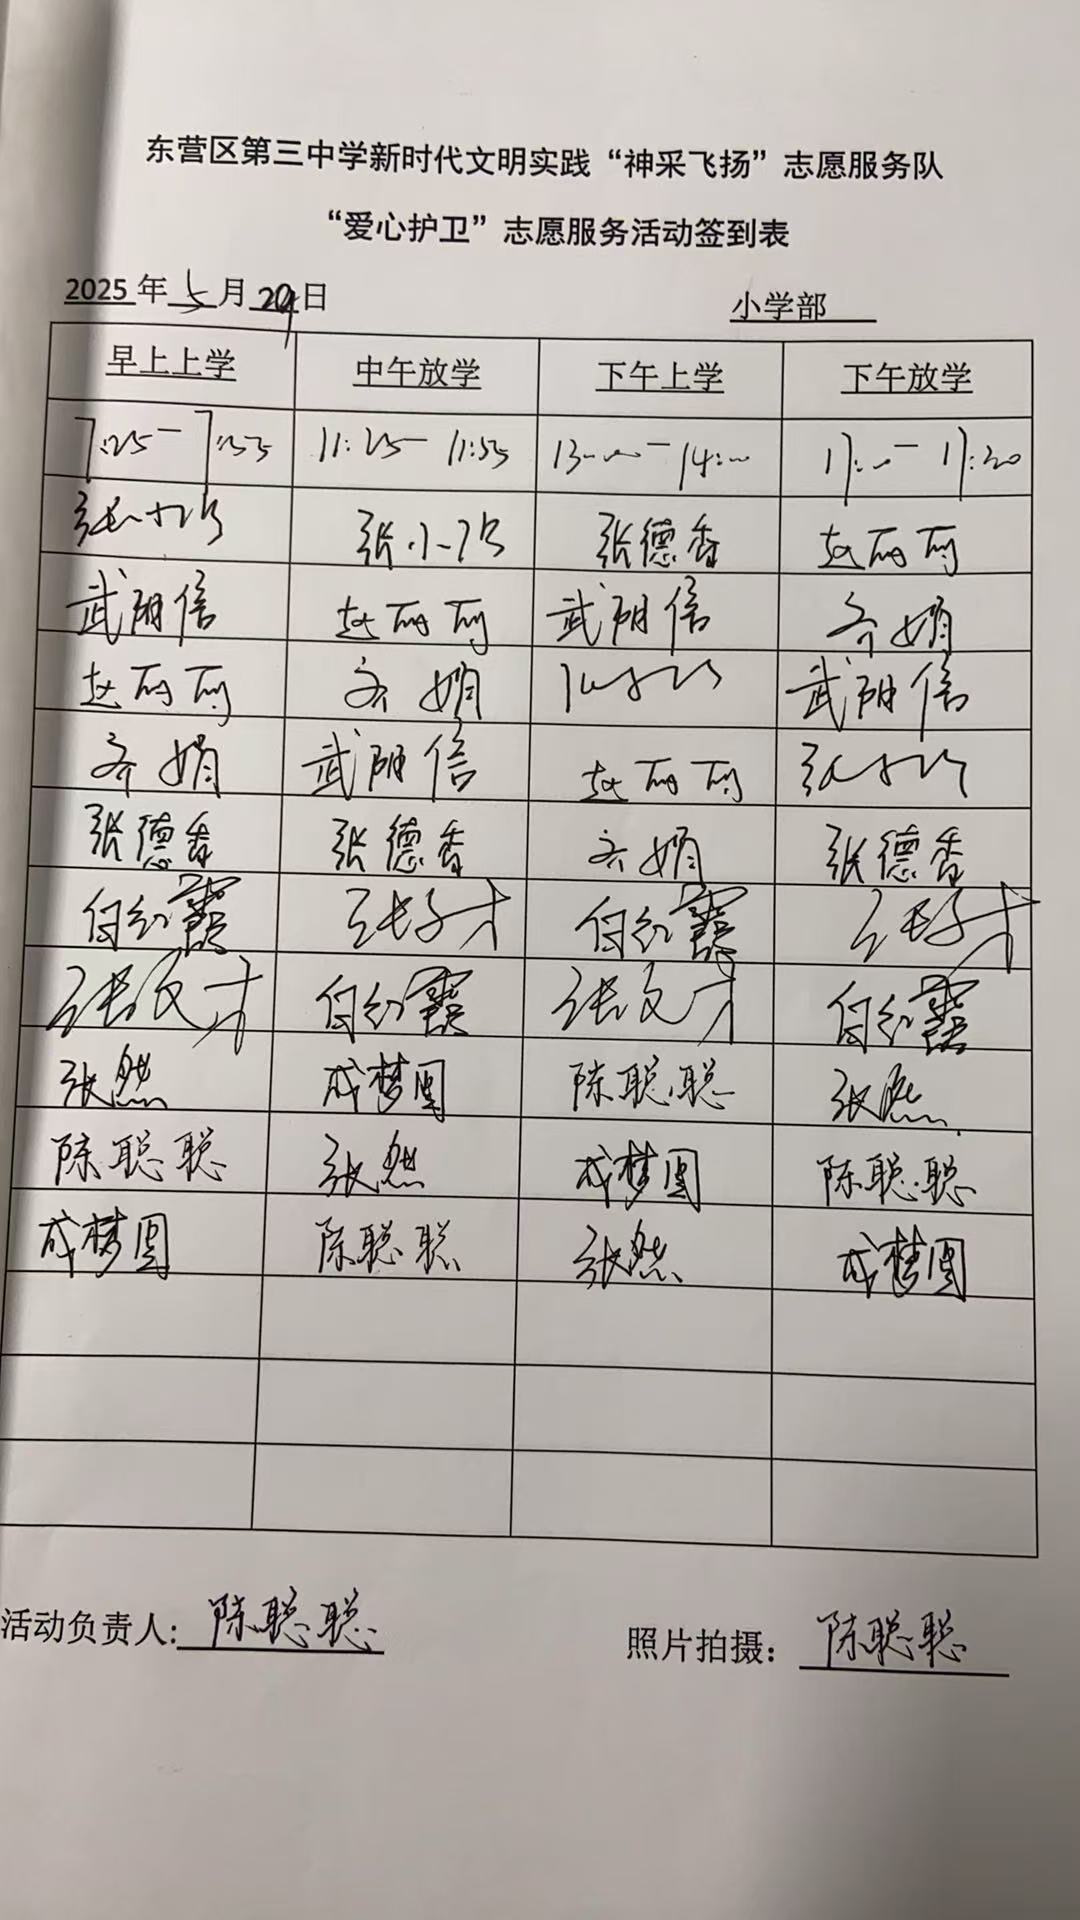 东营区第三中学新时代文明实践“神采飞扬”志愿服务队
“爱心护卫”志愿服务活动签到表
2025年5月29日 小学部
早上上学 中午放学 下午上学 下午放学
7:25-7:55 11:25-11:55 13:00-14:00 17:00-17:20
张小 张小 张德香 赵丽丽
武阳信 赵丽丽 武阳信 齐娟
赵丽丽 齐娟 武阳信
齐娟 武阳信 赵丽丽 张小
张德香 张德香 齐娟 张德香
付红霞 张 才 付红霞 张 才
张文才 付红霞 张文才 付红霞
张然 成梦圆 陈聪聪 张然
陈聪聪 张然 成梦圆 陈聪聪
成梦圆 陈聪聪 张然 成梦圆
活动负责人:陈聪聪 照片拍摄：陈聪聪